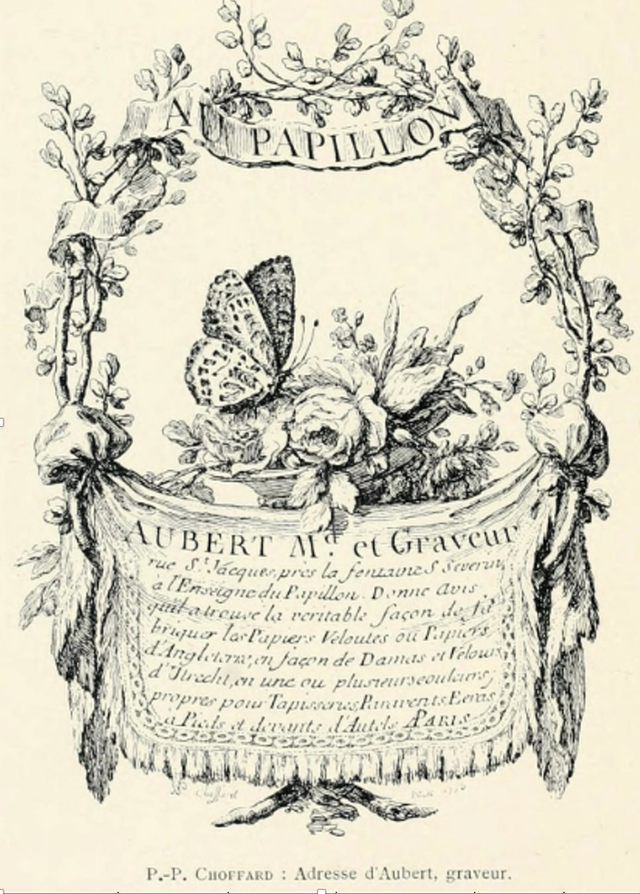 AU PAPILLON
AUBERT Md. et Graveur
rue St. Jacques, près la fontaine S Severin,
a l'Enseigne du Papillon. Donne avis
qu'il a trouvé la veritable façon de fa
briquer les Papiers Veloutés ou Papiers
d'Angleterre, en façon de Damas et Velours
d'Utrecht, en une ou plusieurs couleurs,
propres pour Tapisseries, Paravents, Ecrans
a Pieds et devants d'Autels APARIS
Choffard
P.-P. CHOFFARD : Adresse d'Aubert, graveur.